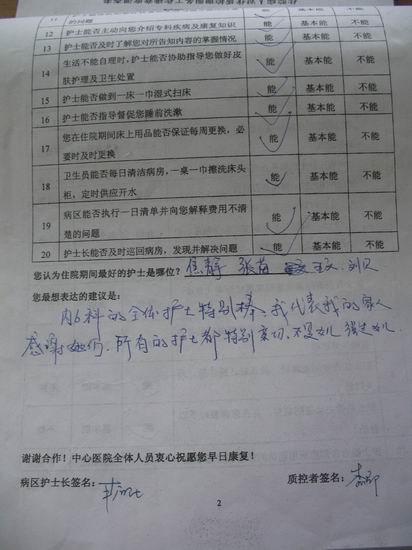 的问题 能 基本能 不能
12 护士能否主动向您介绍专科疾病及康复知识 能 基本能 不能
13 护士能否及时了解您对所告知内容的掌握情况 能 基本能 不能
14 生活不能自理时,护士能否协助指导您做好皮 能 基本能 不能
肤护理及卫生处置
15 护士能否做到一床一巾湿式扫床 能 基本能 不能
16 护士能否指导督促您睡前洗漱 能 基本能 不能
17 您在住院期间床上用品能否保证每周更换,必 能 基本能 不能
要时及时更换
18 卫生员能否每日清洁病房,一桌一巾擦洗床头 能 基本能 不能
柜,定时供应开水
19 病区能否执行一日清单并向您解释费用不清 能 基本能 不能
楚的问题
20 护士长能否及时巡回病房,发现并解决问题 能 基本能 不能
您认为住院期间最好的护士是哪位? 焦静 张苗
您最想表达的建议是:
内6科的全体护士特别棒、我代表我的家人
感谢她们. 所有的护士都特别亲切、不是女儿 强过女儿
谢谢合作!中心医院全体人员衷心祝愿您早日康复!
病区护士长签名: 质控者签名:
2